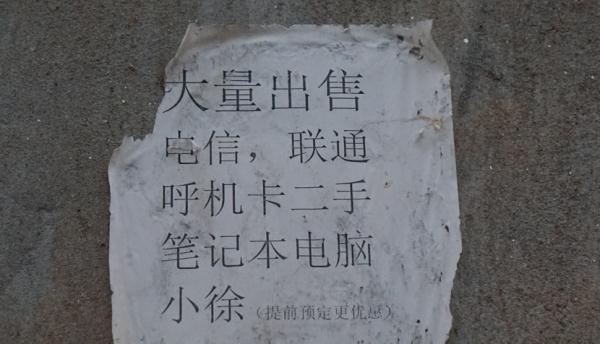 大量出售
电信，联通
呼机卡二手
笔记本电脑
小徐（提前预定更优惠）